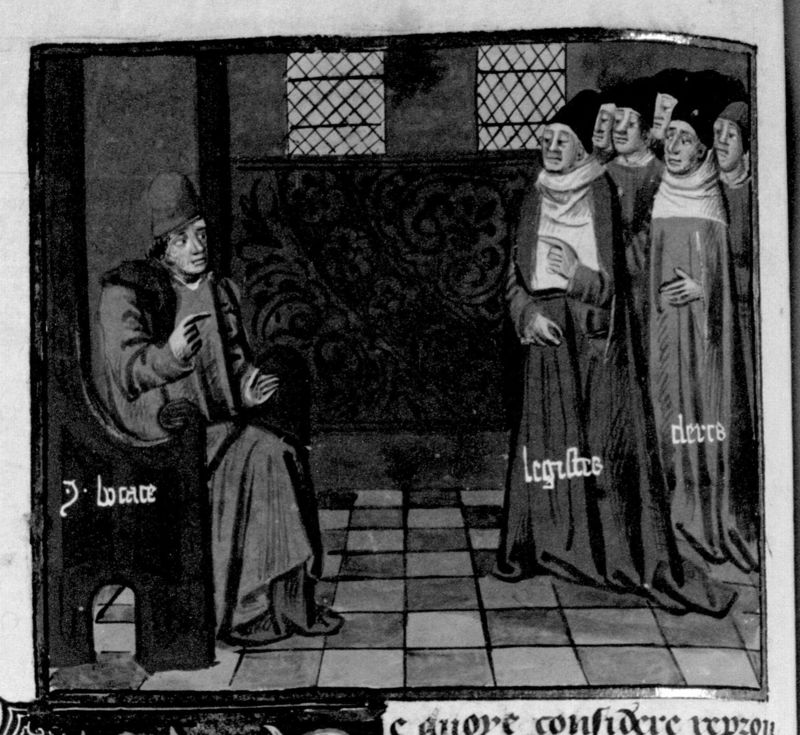 J · bocace
legistes
clercs
e auore considere reprou